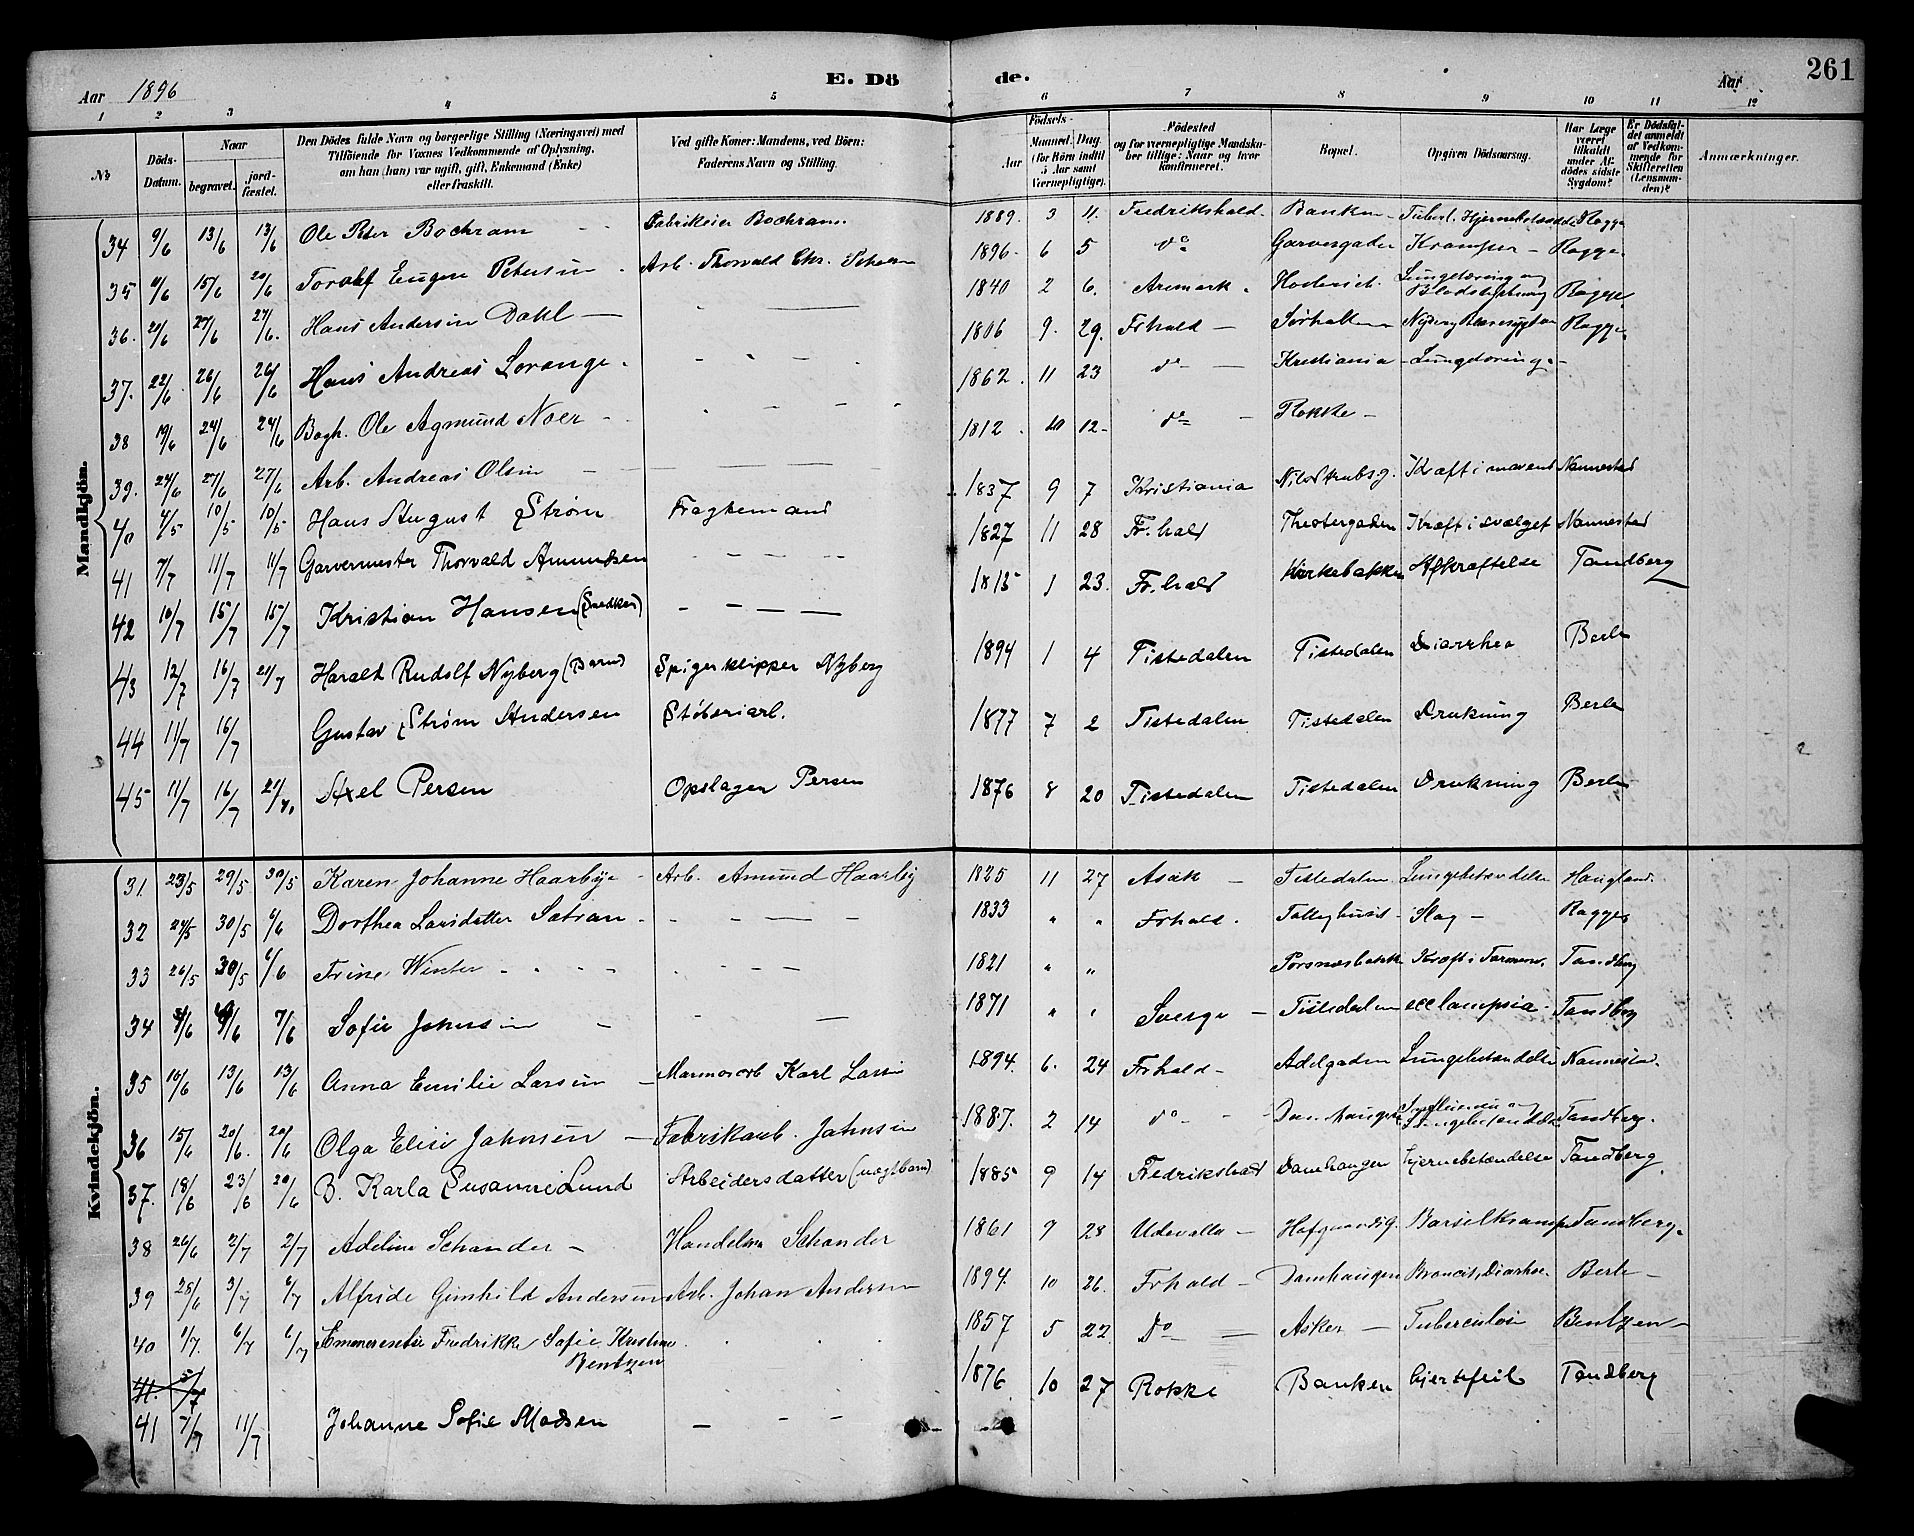 Aar 1896 E. Dö de. Aar 261
1 2 3 4 5 6 7 8 9 10 11 12
№ Döds-Datum. Naar begravet. jord-fæstet. Den Dödes fulde Navn og borgerlige Stilling (Næringsvei) med Tilföiende for Voxnes Vedkommende af Oplysning, om han (hun) var ugift, gift, Enkemand (Enke) eller fraskilt. Ved gifte Koner: Mandens, ved Börn: Faderens Navn og Stilling. Födsels- Aar Maaned. Dag. (for Börn indtil 5 Aar samt Værnepligtige). Födested og for værnepligtige Mandska-ber tillige: Naar og hvor konfirmeret. Bopæl. Opgiven Dödsaarsag. Har Læge været tilkaldt under Af-dödes sidste Sygdom? Er Dödsfal-det anmeldt af Vedkom-mende for Skifteretten (Lensman-den)? Anmærkninger.
Mandkjön.
34 9/6 13/6 13/6 Ole Peter Bochram Fabrikeier Bochram. 1889. 3 11. Fredrikshald. Banken Ragge
35 15/6 20/6 Toralf Eugen Petersen Arb. Thorvald Chr. 1896. 6 5 do Garvergaden Kramper Ragge.
36. 27/6 27/6. Hans Andersen Dahl 1840 2 6. Aremark Ragge.
37. 22/6 26/6 26/6 Hans Andreas Lorange 1806 9. 29. Frhald Ragge.
38 19/6 24/6 24/6 Bogh. Ole Agmund Noer 1862 11 23 do Kristiania
39. 24/6 27/6 27/6 Arb. Andreas Olsen 1812 10 12 do Rokke
40 4/5 10/5 10/5 Hans August Strøm Fragtemand 1837 9 7 Kristiania Kræft i maven Nannestad
41 7/7 11/7 11/7 Garvermester Thorvald Amundsen 1827 11 28 Fr.hald Theatergaden Kræft i svælget Nannestad
42 10/7 15/7 15/7 Kristian Hansen (Snedker) 1815 1 23. Fr.hald Kirkebakken Afkræftelse Tandberg
43 12/7 16/7 21/7 Harald Rudolf Nyberg (Barn) Spigerklipper Nyberg 1894 1 4 Tistedalen Tistedalen Diarrhea Berle
44 11/7 16/7 Gustav Strøm Andersen Støberiarb. 1877 7 2 Tistedalen Tistedalen Drukning Berle
45 11/7 16/7 Axel Persen Opslager Persen 1876 8 20 Tistedalen Tistedalen Drukning Berle
Kvindekjön.
31. 23/5 29/5 30/5 Karen Johanne Haarbye Arb. Amund Haarby 1825 11 27 Asak Tistedalen Lungebetændelse Haugland
32 27/5 30/5 6/6 Dorthea Larsdatter Sætran 1833 " " Frhald. Fattighuset Slag Ragge
33 26/5 30/5 6/6 Trine Winter 1821 " " Porsnesbakk Kræft i Tarmene. Tandberg
34 7/6 Sofie Johnsen 1871 " " Sverge Tistedalen ecclampsia Tandberg
35 10/6 13/6 13/6 Anna Emilie Larsen Marmorarb Karl Larsen 1894. 6. 24 Frhald Adelgaden Lungebetændelse Nannestad.
36 15/6 20/6. 20/6 Olga Elise Johnsen Fabrikarb. Johnsen 1887. 2 14 do Tandberg.
37. 18/6 23/6 20/6 B. Karla Susanne Lund Arbeidersdatter (uægtbarn) 1885 9 14 Fredrikshald Damhaugen hjernebetændelse Tandberg.
38 26/6 2/7 2/7 Adeline Schander Handelsm Schander 1861 7 28 Udevalla Barselkrampe Tandberg.
39 28/6 3/7 6/7 Alfride Gunhild Andersen Arb. Johan Andersen 1894. 10 26. Frhald Damhaugen Broncit, Diarhoe. Berle
40 1/7. 6/7 6/7 Emmerentse Fredrikke Sofie Kristine Bentzen 1857 5 22 Do Asker Tuberculose Bentzen
41. 5/7
41 7/7 11/7 Johanne Sofie Madsen 1876 10 27 Rokke Banken hjertefeil Tandberg